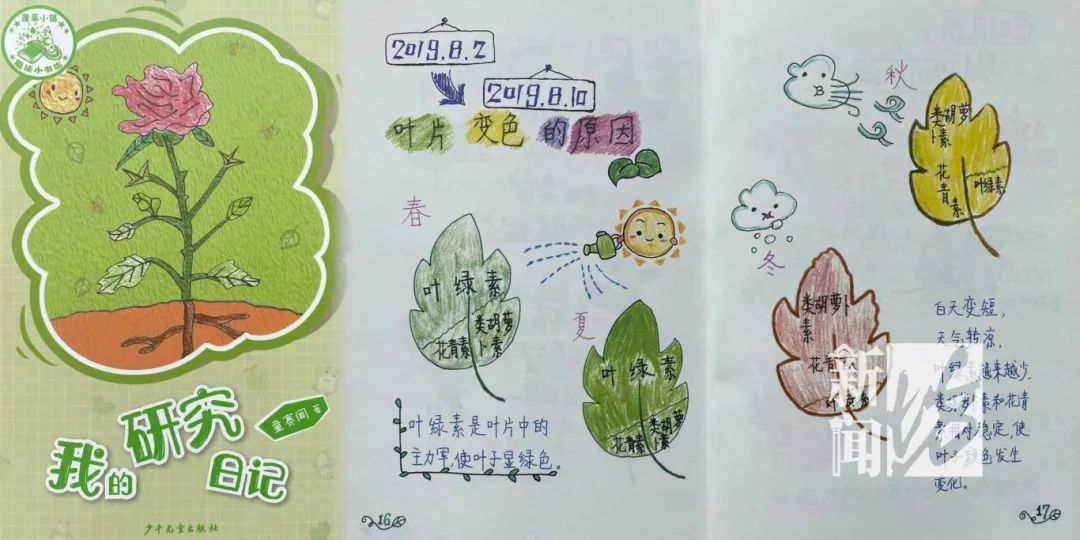 蓬莱小镇
魔法小书店
我的
研究
日记
童赛闻 著
少年儿童出版社
2019.8.2
2019.8.10
叶片 变色 的 原因
春
叶 绿 素
类胡萝
卜素
花青素
夏
叶 绿 素
类胡萝
卜素
花青素
叶绿素是叶片中的
主力军,使叶子显绿色。
16
秋
类胡萝
卜素
花青素
叶绿素
冬
类胡萝卜
素
花青素
白天变短,
天气转凉,
叶绿素越来越少.
类胡萝卜素和花青
素相对稳定,使
叶子颜色发生
变化。
17
新闻